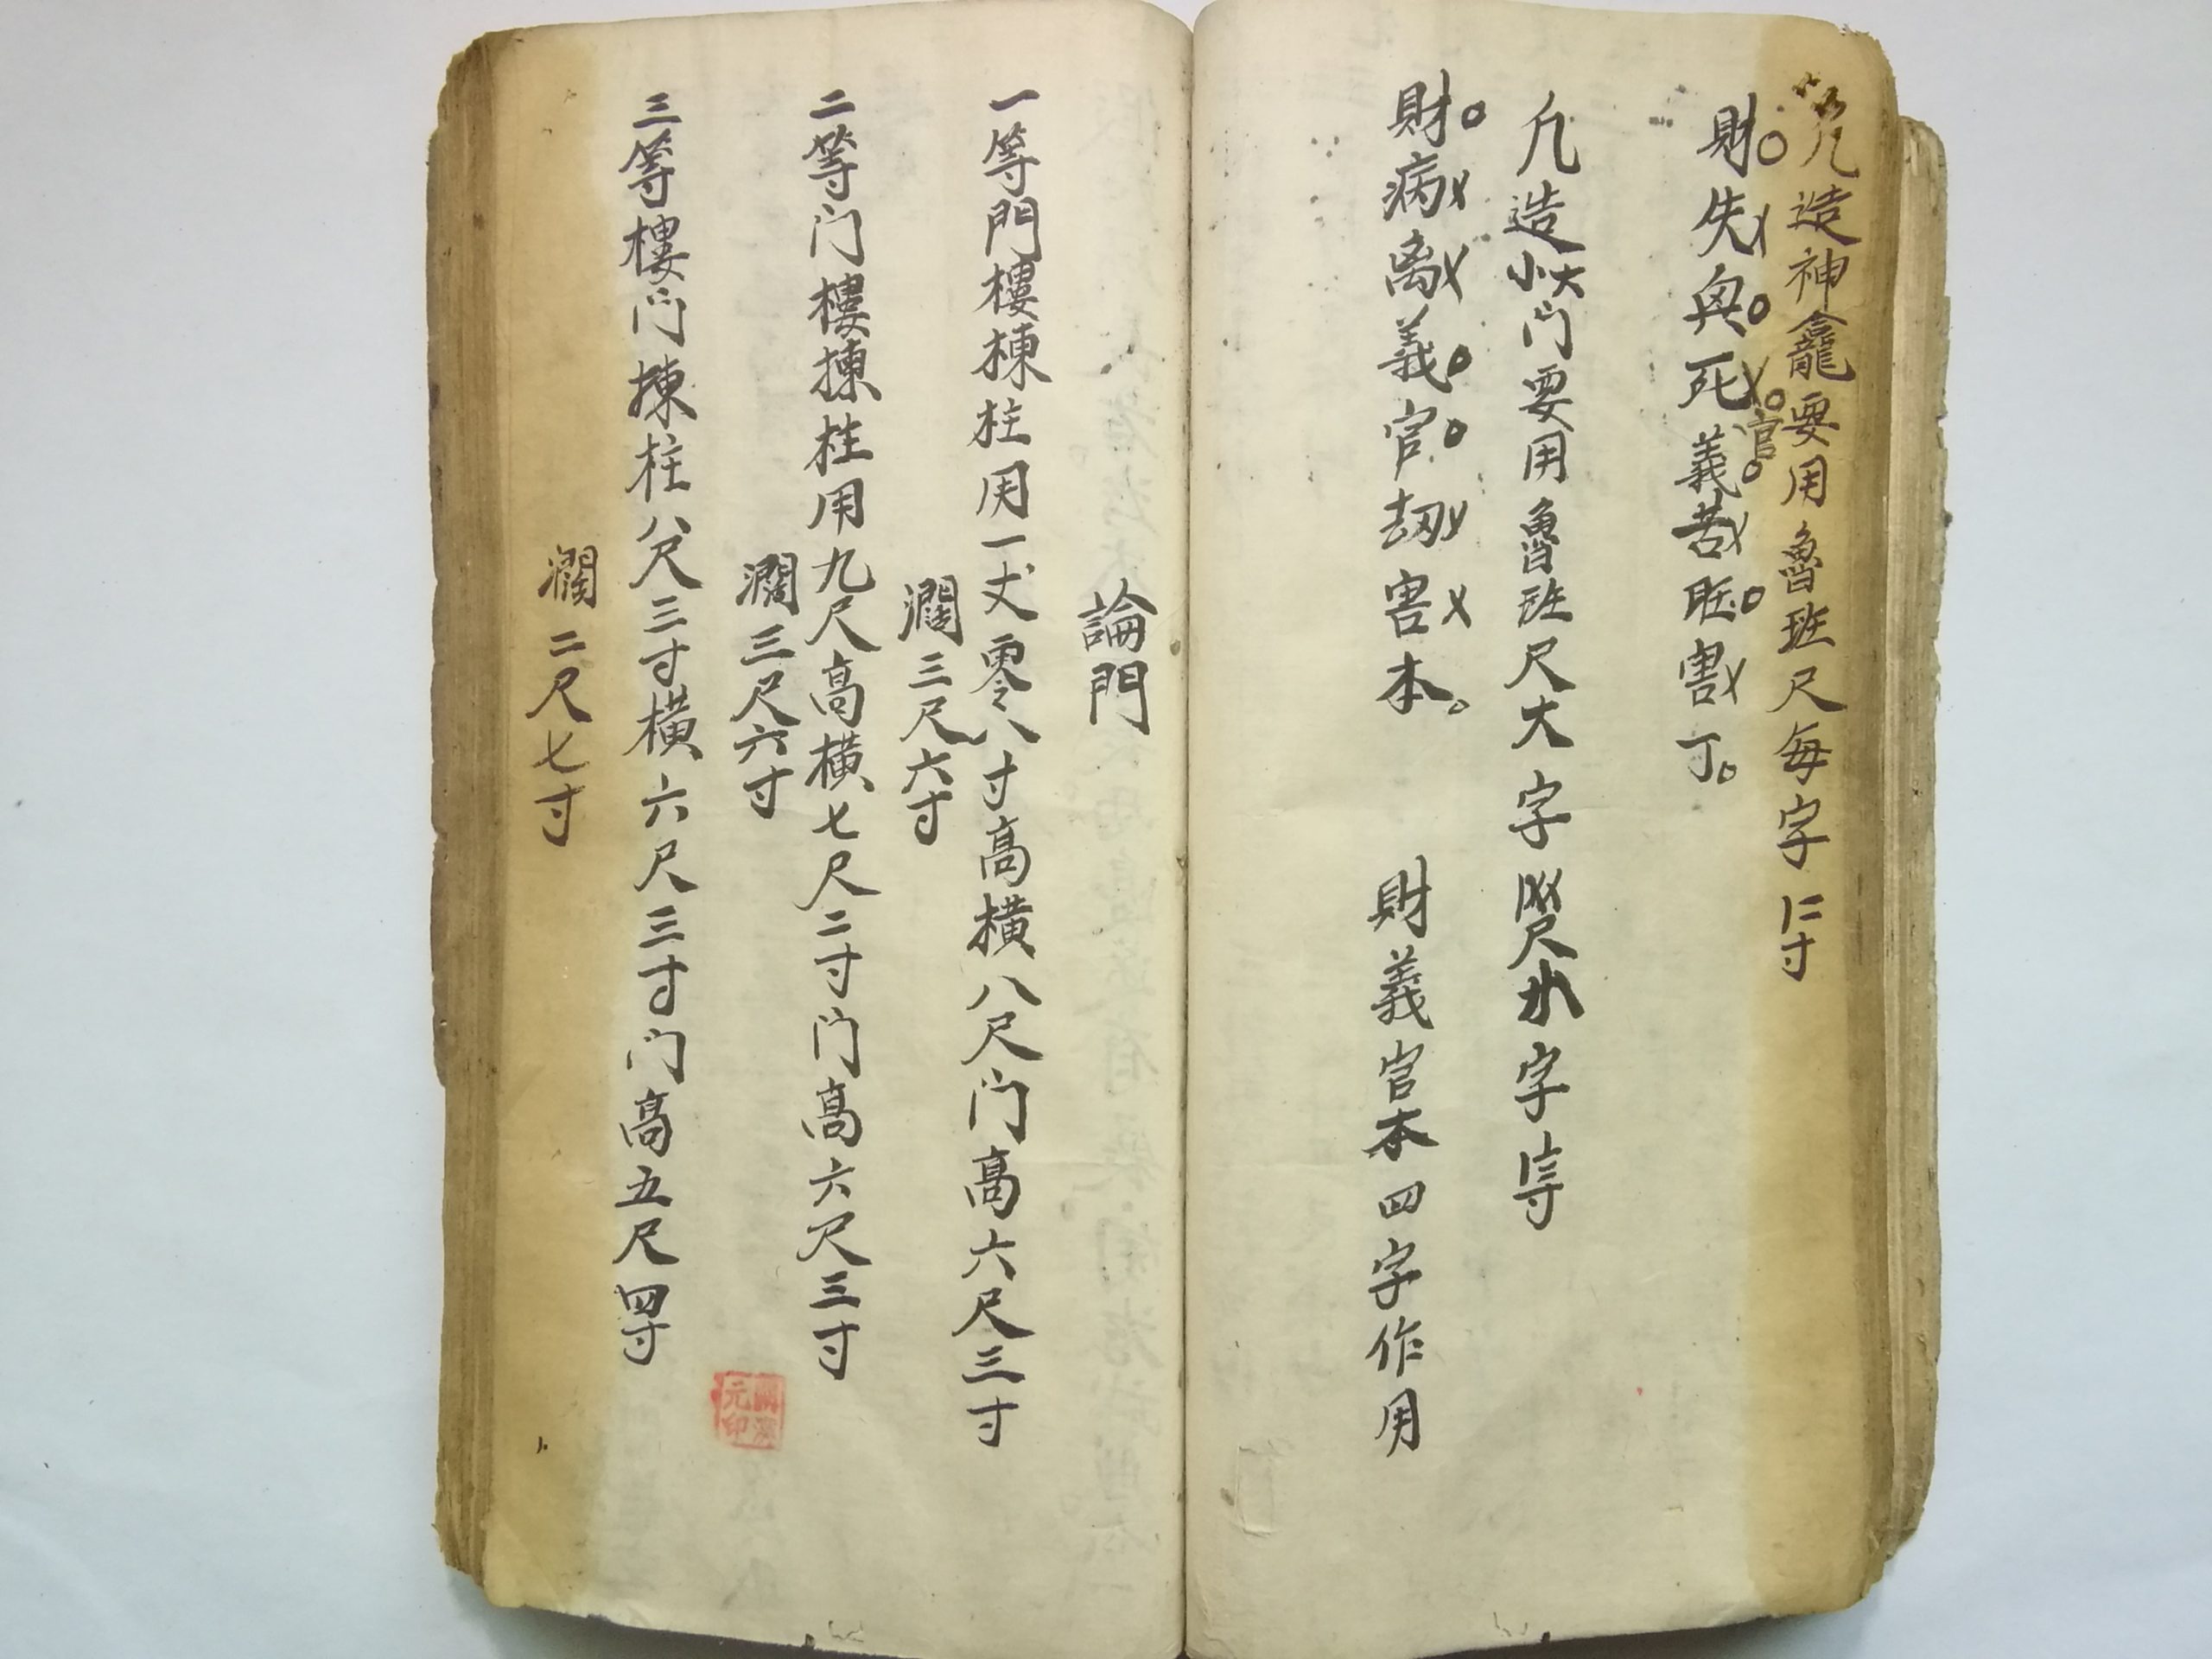 凡造神龕要用魯班尺每字寸
財失興死官義苦旺害丁
凡造大小门要用魯班尺大字尺水字寸
財病离義官劫害本 財義官本四字作用
論門
一等門樓棟柱用一丈零八寸高横八尺门高六尺三寸
濶三尺六寸
二等门樓揀柱用九尺高横七尺二寸门高六尺三寸
濶三尺六寸
三等樓门揀柱八尺三寸横六尺三寸门高五尺四寸
濶二尺七寸
元印